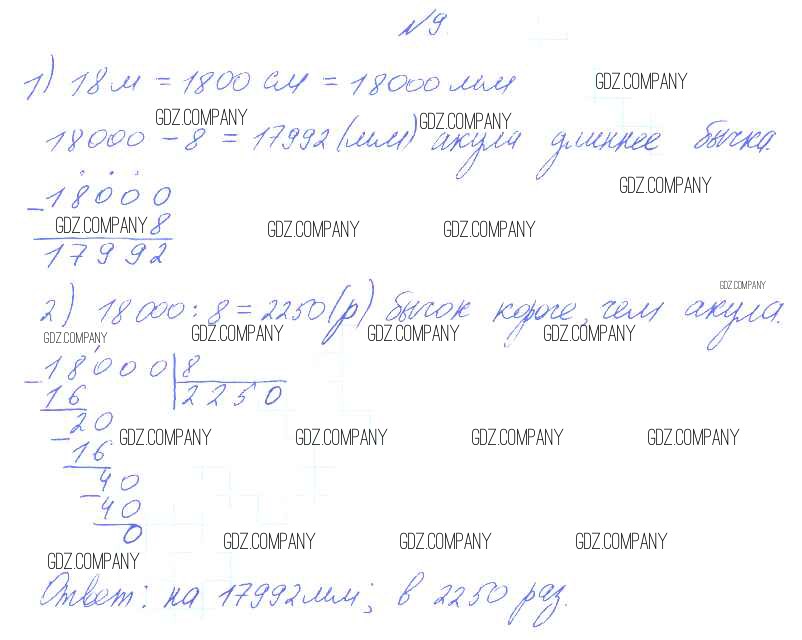 №9.
1) 18 м = 1800 см = 18000 мм
GDZ.COMPANY
GDZ.COMPANY GDZ.COMPANY
18000 - 8 = 17992 (мм) акула длиннее бычка.
GDZ.COMPANY
- 18000
GDZ.COMPANY 8 GDZ.COMPANY GDZ.COMPANY
17992
GDZ.COMPANY
2) 18000 : 8 = 2250 (р) бычок короче, чем акула.
GDZ.COMPANY GDZ.COMPANY GDZ.COMPANY GDZ.COMPANY
- 18000 | 8
16 | 2250
- 20
GDZ.COMPANY GDZ.COMPANY GDZ.COMPANY GDZ.COMPANY
16
- 40
40
0
GDZ.COMPANY GDZ.COMPANY GDZ.COMPANY
GDZ.COMPANY
Ответ: на 17992 мм; в 2250 раз.